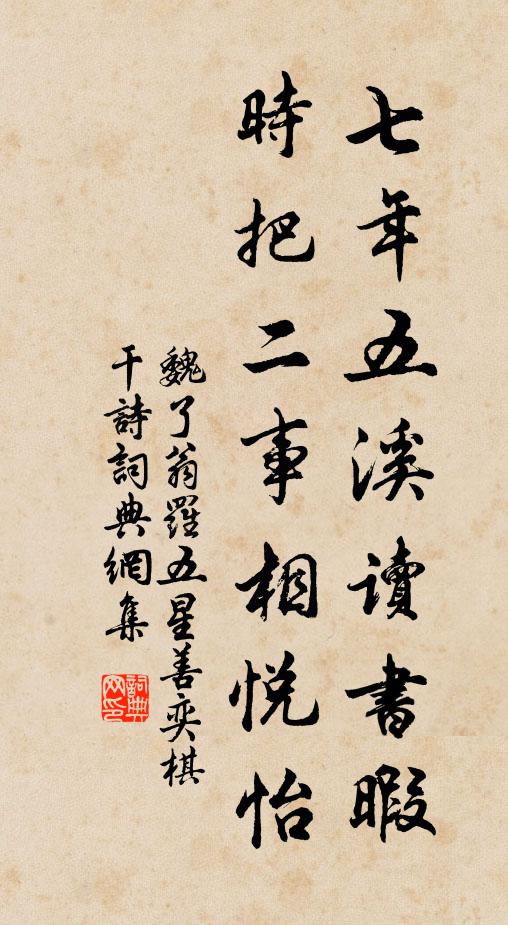 七年五溪讀書暇
時把二事相悅怡
魏了翁羅五星善奕棋
干詩詞典網集
詞典
网印